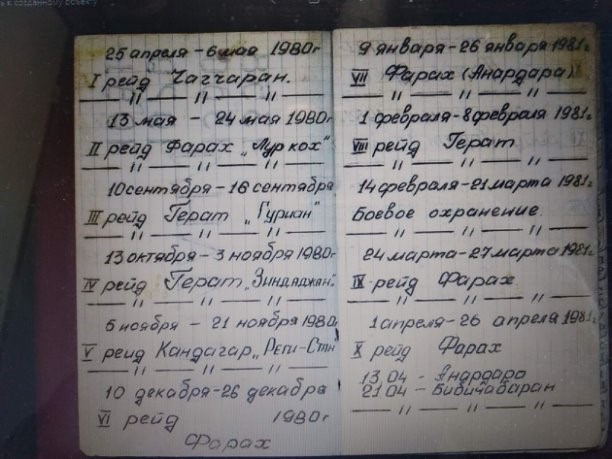 к созданному объекту
25 апреля - 6 мая 1980г
I рейд Чагчаран.
— // — // — // —
13 мая - 24 мая 1980г
II рейд Фарах „Лур кох"
— // — // — // —
10 сентября - 16 сентября
III рейд Герат „Гуриан"
— // — // — // —
13 октября - 3 ноября 1980г
IV рейд Герат „Зиндаджан"
— // — // — // —
6 ноября - 21 ноября 1980г
V рейд Кандагар „Реги-Стн
— // — // — // —
10 декабря - 26 декабря
VI рейд 1980г
Фарах
9 января - 26 января 1981г
VII Фарах (Анардара)
— // — // — // —
1 февраля - 8 февраля 1981г
VIII рейд Герат
— // — // — // —
14 февраля - 21 марта 1981г
Боевое охранение.
— // — // — // —
24 марта - 27 марта 1981г
IX рейд Фарах
— // — // — // —
1 апреля - 26 апреля 1981г
X рейд Фарах
13,04 - Анардара
21 04 - Бибичабаран
— // — // — // —